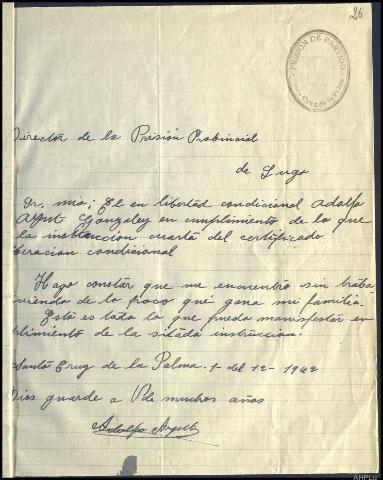 26
PRISIÓN DE PARTIDO
Santa Cruz de la Palma
Director de la Prisión Probincial
de Lugo
Sr. mio; El en libertad condicional Adolfo
Gonzalez en cumplimiento de lo que
la instruccion cuarta del certificado
beracion condicional
Hago constar que me encuentro sin traba
viviendo de lo poco que gana mi familia.
Esto es todo lo que puedo manifestar en
plimiento de la sitada instruccion.
Santa Cruz de la Palma. 1- del 12- 1942
Dios guarde a Vd. muchos años
Adolfo
AHPLu